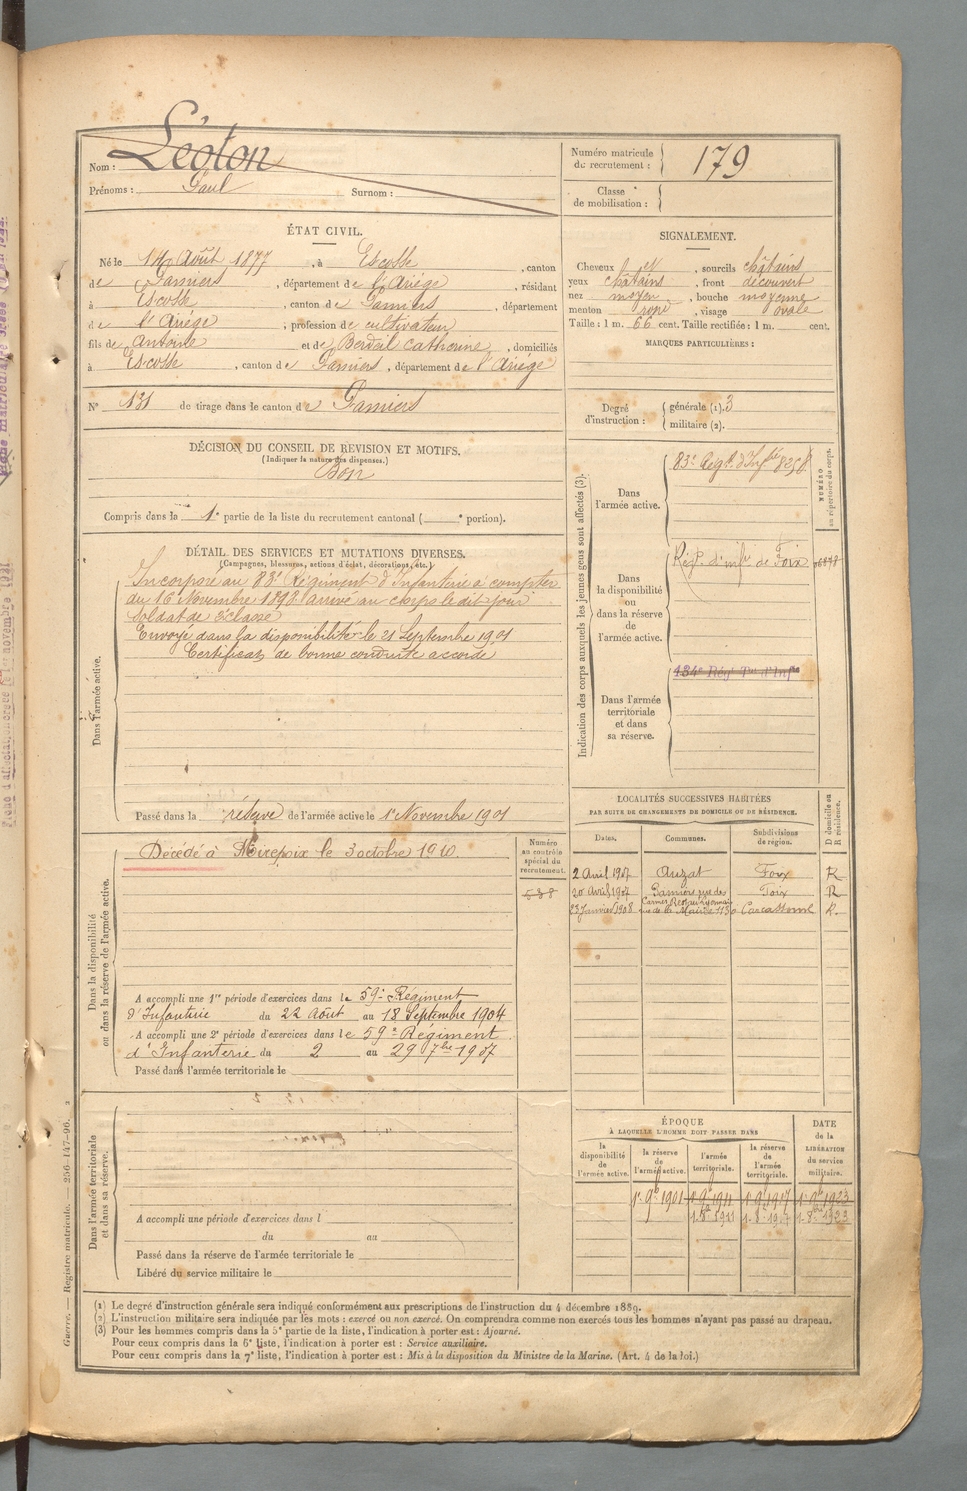 Nom : Léoton
Prénoms : Paul Surnom :
Numéro matricule de recrutement : 179
Classe de mobilisation :
ÉTAT CIVIL.
Né le 14 Août 1877, à Escosse, canton
de Pamiers, département de l'Ariége, résidant
à Escosse, canton de Pamiers, département
de l'Ariége, profession de cultivateur
fils de Antoine et de Berdeil Catherine, domiciliés
à Escosse, canton de Pamiers, département de l'Ariége
N° 131 de tirage dans le canton de Pamiers
SIGNALEMENT.
Cheveux et, sourcils châtains
yeux châtains, front découvert
nez moyen, bouche moyenne
menton rond, visage ovale
Taille : 1 m. 66 cent. Taille rectifiée : 1 m. cent.
MARQUES PARTICULIÈRES :
Degré d'instruction : générale (1). 3
militaire (2).
DÉCISION DU CONSEIL DE REVISION ET MOTIFS.
(Indiquer la nature des dispenses.)
Bon
Compris dans la 1e partie de la liste du recrutement cantonal ( e portion).
DÉTAIL DES SERVICES ET MUTATIONS DIVERSES.
(Campagnes, blessures, actions d'éclat, décorations, etc.)
Dans l'armée active.
Incorporé au 83e Régiment d'Infanterie à compter
du 16 Novembre 1898. Arrivé au corps le dit jour
soldat de 2e classe
Envoyé dans la disponibilité le 21 Septembre 1901
Certificat de bonne conduite accordé
Passé dans la réserve de l'armée active le 1er Novembre 1901
Indication des corps auxquels les jeunes gens sont affectés (3).
NUMÉRO au répertoire du corps.
Dans l'armée active.
83e Régt d'Infie
Dans la disponibilité ou dans la réserve de l'armée active.
Rég. d'infie de Foix
Dans l'armée territoriale et dans sa réserve.
134e Rég Tal d'Infie
LOCALITÉS SUCCESSIVES HABITÉES
PAR SUITE DE CHANGEMENTS DE DOMICILE OU DE RÉSIDENCE.
Dates. Communes. Subdivisions de région. D domicile ou R résidence.
2 Avril 1907 Auzat Foix R
20 Avril 1907 Pamiers rue des Foix R
23 Janvier 1908 Carcassonne R.
Dans la disponibilité ou dans la réserve de l'armée active.
Décédé à Mirepoix le 3 octobre 1910.
Numéro au contrôle spécial du recrutement.
538
A accompli une 1re période d'exercices dans le 59e Régiment
d'Infanterie du 22 Août au 18 Septembre 1904
A accompli une 2e période d'exercices dans le 59e Régiment
d'Infanterie du 2 au 29 7bre 1907
Passé dans l'armée territoriale le
Dans l'armée territoriale et dans sa réserve.
A accompli une période d'exercices dans l
du au
Passé dans la réserve de l'armée territoriale le
Libéré du service militaire le
ÉPOQUE
À LAQUELLE L'HOMME DOIT PASSER DANS
DATE de la LIBÉRATION du service militaire.
la disponibilité de l'armée active. la réserve de l'armée active. l'armée territoriale. la réserve de l'armée territoriale.
1er 9bre 1901 1er 9bre 1911 1er 9bre 1917 1er 9bre 1923
1.8bre 1911 1.8bre 1917 1.8bre 1923
(1) Le degré d'instruction générale sera indiqué conformément aux prescriptions de l'instruction du 4 décembre 1889.
(2) L'instruction militaire sera indiquée par les mots : exercé ou non exercé. On comprendra comme non exercés tous les hommes n'ayant pas passé au drapeau.
(3) Pour les hommes compris dans la 5e partie de la liste, l'indication à porter est : Ajourné.
Pour ceux compris dans la 6e liste, l'indication à porter est : Service auxiliaire.
Pour ceux compris dans la 7e liste, l'indication à porter est : Mis à la disposition du Ministre de la Marine. (Art. 4 de la loi.)
Guerre. — Registre matricule. — 256-147-96. 2